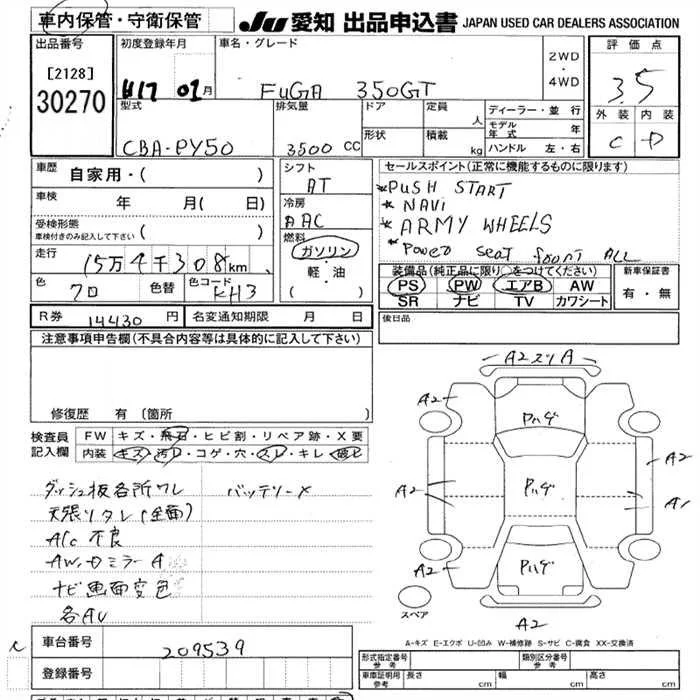 車内保管・守衛保管 JU 愛知 出品申込書 JAPAN USED CAR DEALERS ASSOCIATION
出品番号 [2128] 30270
初度登録年月 H17 01月
車名・グレード FUGA 350GT
2WD・4WD
評価点 3.5
外装 C 内装 D
型式 CBA-PY50
排気量 3500 CC
ドア 形状
定員 人
積載 kg
ディーラー・並行
モデル年式 年
ハンドル 左・右
車歴 自家用・( )
車検 年 月( 日)
受検形態 車検付きのみ記入して下さい ( )
走行 15万4千308km
色 クロ 色替 色コード KH3
シフト AT
冷房 AAC
燃料 ガソリン・軽・油 ( )
セールスポイント(正常に機能するものに限ります)
*PUSH START
* NAVi
* ARMY WHEELS
* Power seat front ALL
装備品(純正品に限り○をつけてください)
PS PW エアB AW
SR ナビ TV カワシート
新車保証書 有・無
R券 14430 円 名変通知期限 月 日
後日品
注意事項申告欄(不具合内容等は具体的に記入して下さい)
修復歴 有 (箇所 )
検査員記入欄
FW キズ・飛石・ヒビ割・リペア跡・X要
内装 キズ・汚レ・コゲ・穴・スレ・キレ・破レ
ダッシュ板各所ワレ バッテリーX
天張リタレ(全面)
A/C 不良
AW.Dミラー A
ナビ画面変色
各AU
A2スリA
A2
Pハゲ
A2
A2
A2
A1
Pハゲ
A2
A2
Pハゲ
スペア
A2
A-キズ E-エクボ U-凹み W-補修跡 S-サビ C-腐食 XX-交換済
車台番号 209539
登録番号
形式指定番号 参考
類別区分番号 参考
車庫証明用 参考 長さ cm 幅 cm 高さ cm